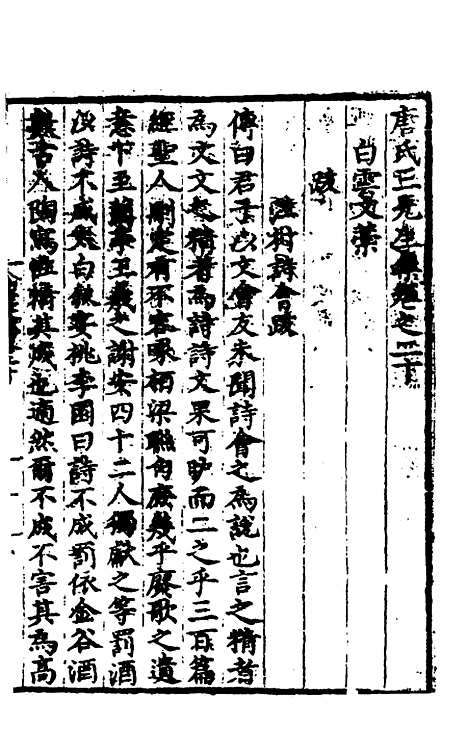 唐氏三先生集卷之二十
白雲文藁
跋
詩會跋
傳曰君子以文會友未聞詩會之為說也言之精者
為文文之精者為詩詩文果可岐而二之乎三百篇
經聖人刪定有不容啄栢梁聯句庶幾乎賡歌之遺
意亦下至蘭亭王羲之謝安四十二人獨獻之等罰酒
以詩不成然白叙宴桃李園曰詩不成罰依金谷酒
數古人陶寫性情其成也適然爾不成不害其為高